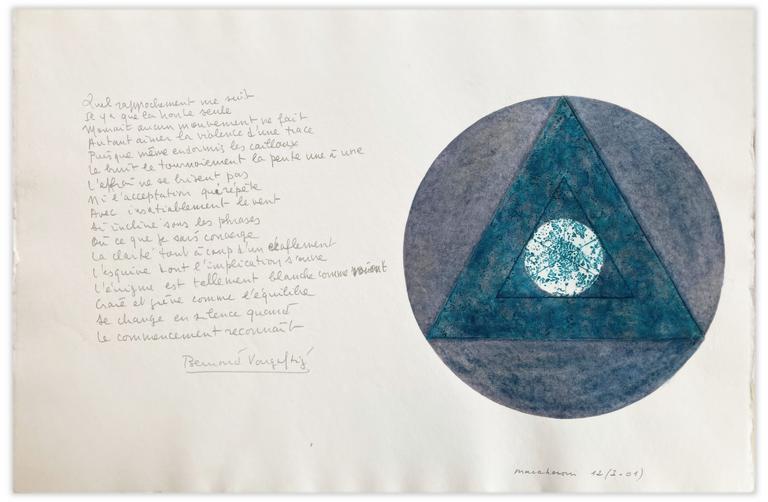 Quel rapprochement me suit
Il y a que la honte seule
mouvait aucun mouvement ne fait
Autant aimer la violence d'une trace
Puisque même endormis les cailloux
Le bruit le tournoiement la pente une à une
L'effroi ne se brisent pas
Ni l'acceptation que répète
Avec insatiablement le vent
Si incliné sous les phrases
Où ce que je sais converge
La clarté tout à coup d'un
L'esquive dont l'implication s'ouvre
L'énigme est tellement blanche comme
Craie et grève comme l'équilibre
Se change en silence quand
Le commencement reconnaît
Bernard Vargaftig
maccheroni 12 (I-01)